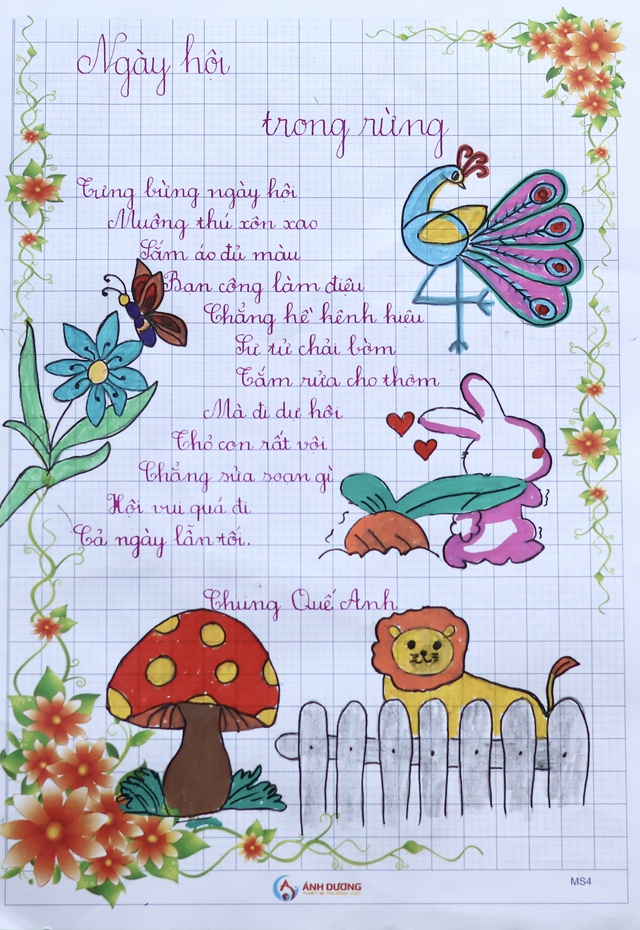 Ngày hội
trong rừng
Tưng bừng ngày hội
Muông thú xôn xao
Sắm áo đủ màu
Bạn công làm điệu
Chẳng hề kênh kiêu
Sư tử chải bờm
Tắm rửa cho thơm
Mà đi dự hội
Thỏ con rất vội
Chẳng sửa soạn gì
Hội vui quá đi
Cả ngày lẫn tối.
Chung Quế Anh
ÁNH DƯƠNG
MS4